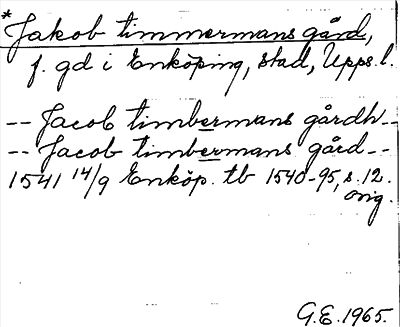 *Jakob timmermans gård,
f. gd i Enköping, stad, Upps. l.
-- Jacob timbermans gårdh --
-- Jacob timbermans gård --
1541 14/9 Enköp. tb 1540-95, s. 12.
orig.
G.E. 1965.